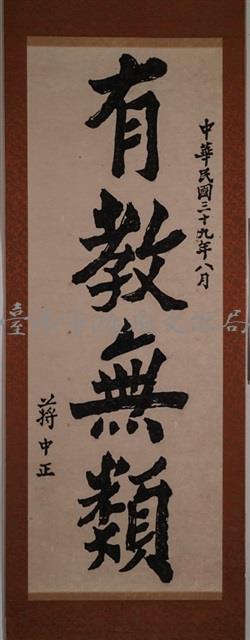 中華民國三十九年八月
有教無類
蔣中正